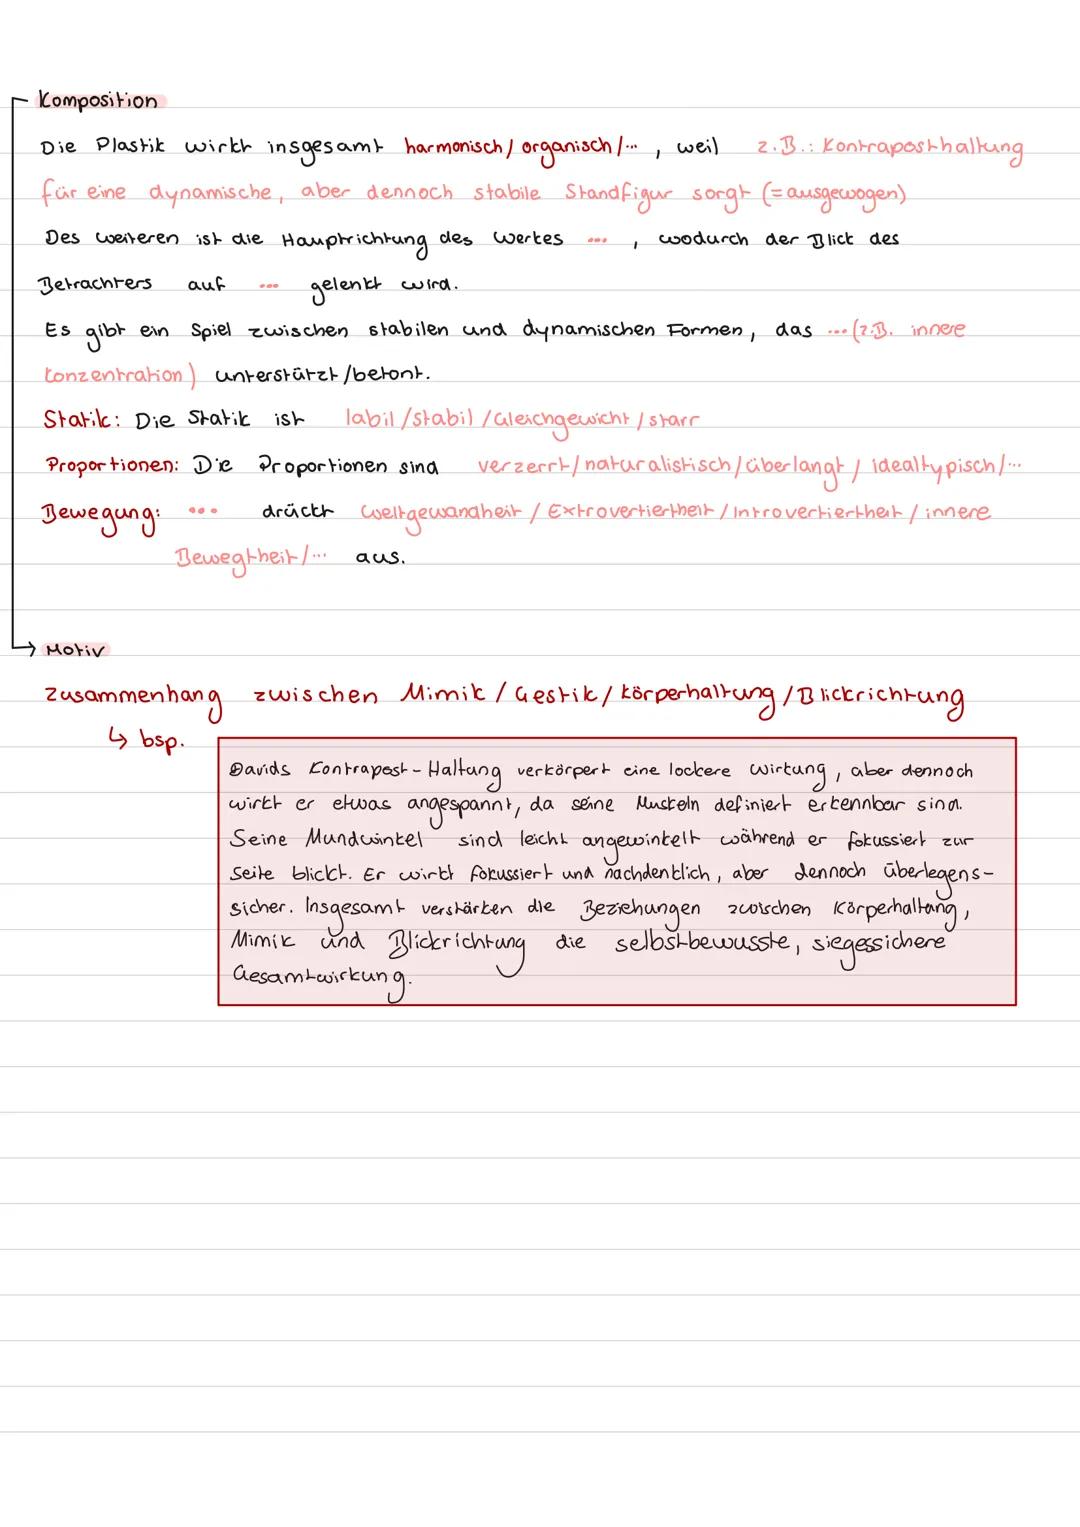 Komposition
Die Plastik wirkt insgesamt harmonisch/organisch/..., weil z.B.: Kontraposthaltung
für eine dynamische, aber dennoch stabile Standfigur sorgt (=ausgewogen)
Des weiteren ist die Hauptrichtung des Wertes ..., wodurch der Blick des
Betrachters auf ... gelenkt wird.
Es gibt ein Spiel zwischen stabilen und dynamischen Formen, das ...(z.B. innere
Konzentration) unterstützt/betont.
Statik: Die Statik ist labil/stabil/Gleichgewicht/starr
Proportionen: Die Proportionen sind verzerrt/naturalistisch/überlangt/idealtypisch/...
Bewegung: ... drückt Weltgewandheit/Extrovertiertheit/Introvertiertheit/innere
Bewegtheit/... aus.
→ Motiv
Zusammenhang zwischen Mimik/Gestik/Körperhaltung/Blickrichtung
↳ bsp.
Davids Kontrapost-Haltung verkörpert eine lockere Wirkung, aber dennoch
wirkt er etwas angespannt, da seine Muskeln definiert erkennbar sind.
Seine Mundwinkel sind leicht angewinkelt während er fokussiert zur
Seite blickt. Er wirkt fokussiert und nachdenklich, aber dennoch überlegens-
sicher. Insgesamt verstärken die Beziehungen zwischen Körperhaltung,
Mimik und Blickrichtung die selbstbewusste, siegessichere
Gesamtwirkung.